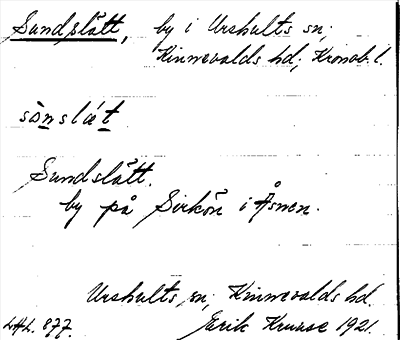 Sundslätt, by i Urshults sn;
Kinnevalds hd; Kronob. l.
sònslæt
Sundslätt.
by på Sirkön i Åsnen.
Urshults sn; Kinnevalds hd.
LAL. 877. Erik Kruuse 1921.